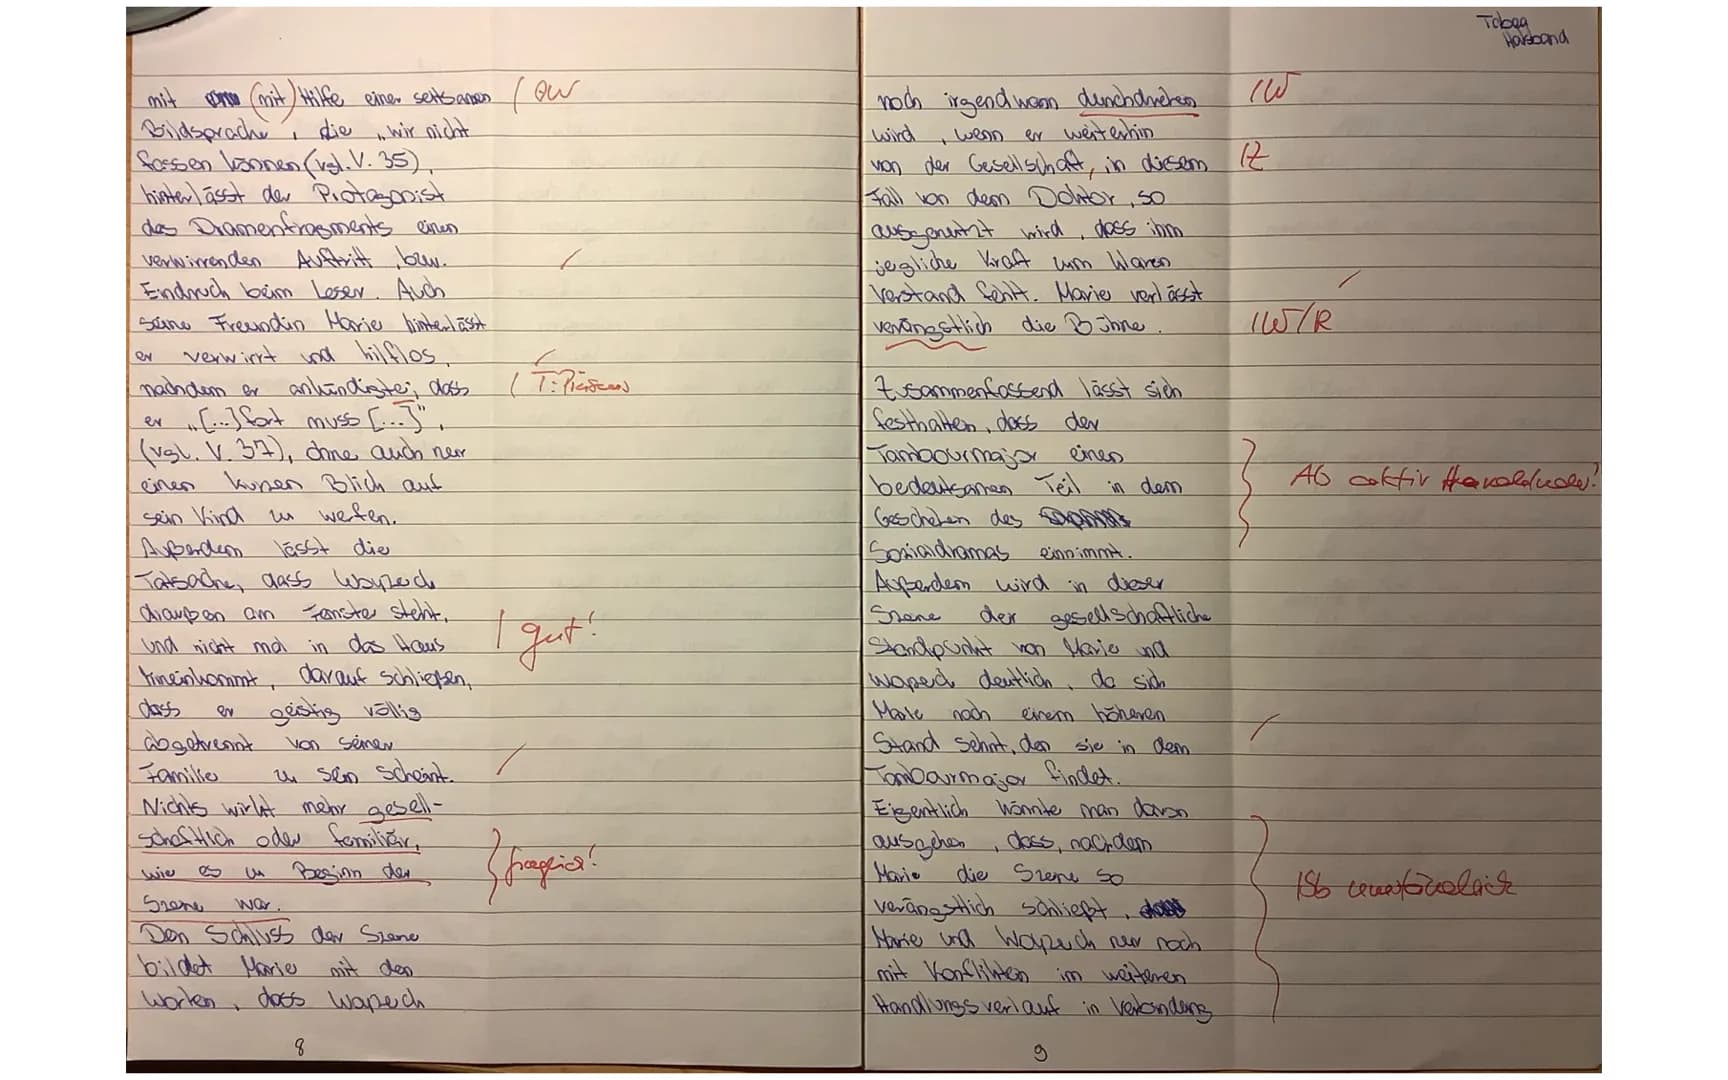 mit (mit) Hilfe einer seltsamen
Bildsprache, die „wir nicht
fassen können (vgl. V. 35),
hinterlässt der Protagonist
des Dramenfragments einen
verwirrenden Auftritt, bzw.
Eindruck beim Leser. Auch
seine Freundin Marie hinterlässt
er verwirrt und hilflos,
nachdem er ankündigte, dass
er „[...] fort muss [...]",
(vgl. V. 37), ohne auch nur
einen kurzen Blick auf
sein Kind zu werfen.
Außerdem lässt die
Tatsache, dass Woyzeck
draußen am Fenster steht,
und nicht mal in das Haus
hineinkommt, darauf schließen,
dass er geistig völlig
abgetrennt von seiner
Familie zu sein scheint.
Nichts wirkt mehr gesell-
schaftlich oder familiär,
wie es zu Beginn der
Szene war.
Den Schluss der Szene
bildet Marie mit den
Worten, dass Woyzeck
8
gut!
fraglich!
Tobea
Halsband
noch irgendwann durchdrehen
wird, wenn er weiterhin
von der Gesellschaft, in diesem
Fall von dem Doktor, so
ausgenutzt wird, dass ihm
jegliche Kraft zum klaren
Verstand fehlt. Marie verlässt
verängstlich die Bühne.
Zusammenfassend lässt sich
festhalten, dass der
Tambourmajor einen
bedeutsamen Teil in dem
Geschehen des
Sozialdramas einnimmt.
Außerdem wird in dieser
Szene der gesellschaftliche
Standpunkt von Marie und
Woyzeck deutlich, da sich
Marie nach einem höheren
Stand sehnt, den sie in dem
Tambourmajor findet.
Eigentlich könnte man davon
ausgehen, dass, nachdem
Marie die Szene so
verängstlich schließt,
Marie und Woyzeck nur noch
mit Konflikten im weiteren
Handlungsverlauf in Verbindung
9
W
Z
W/R